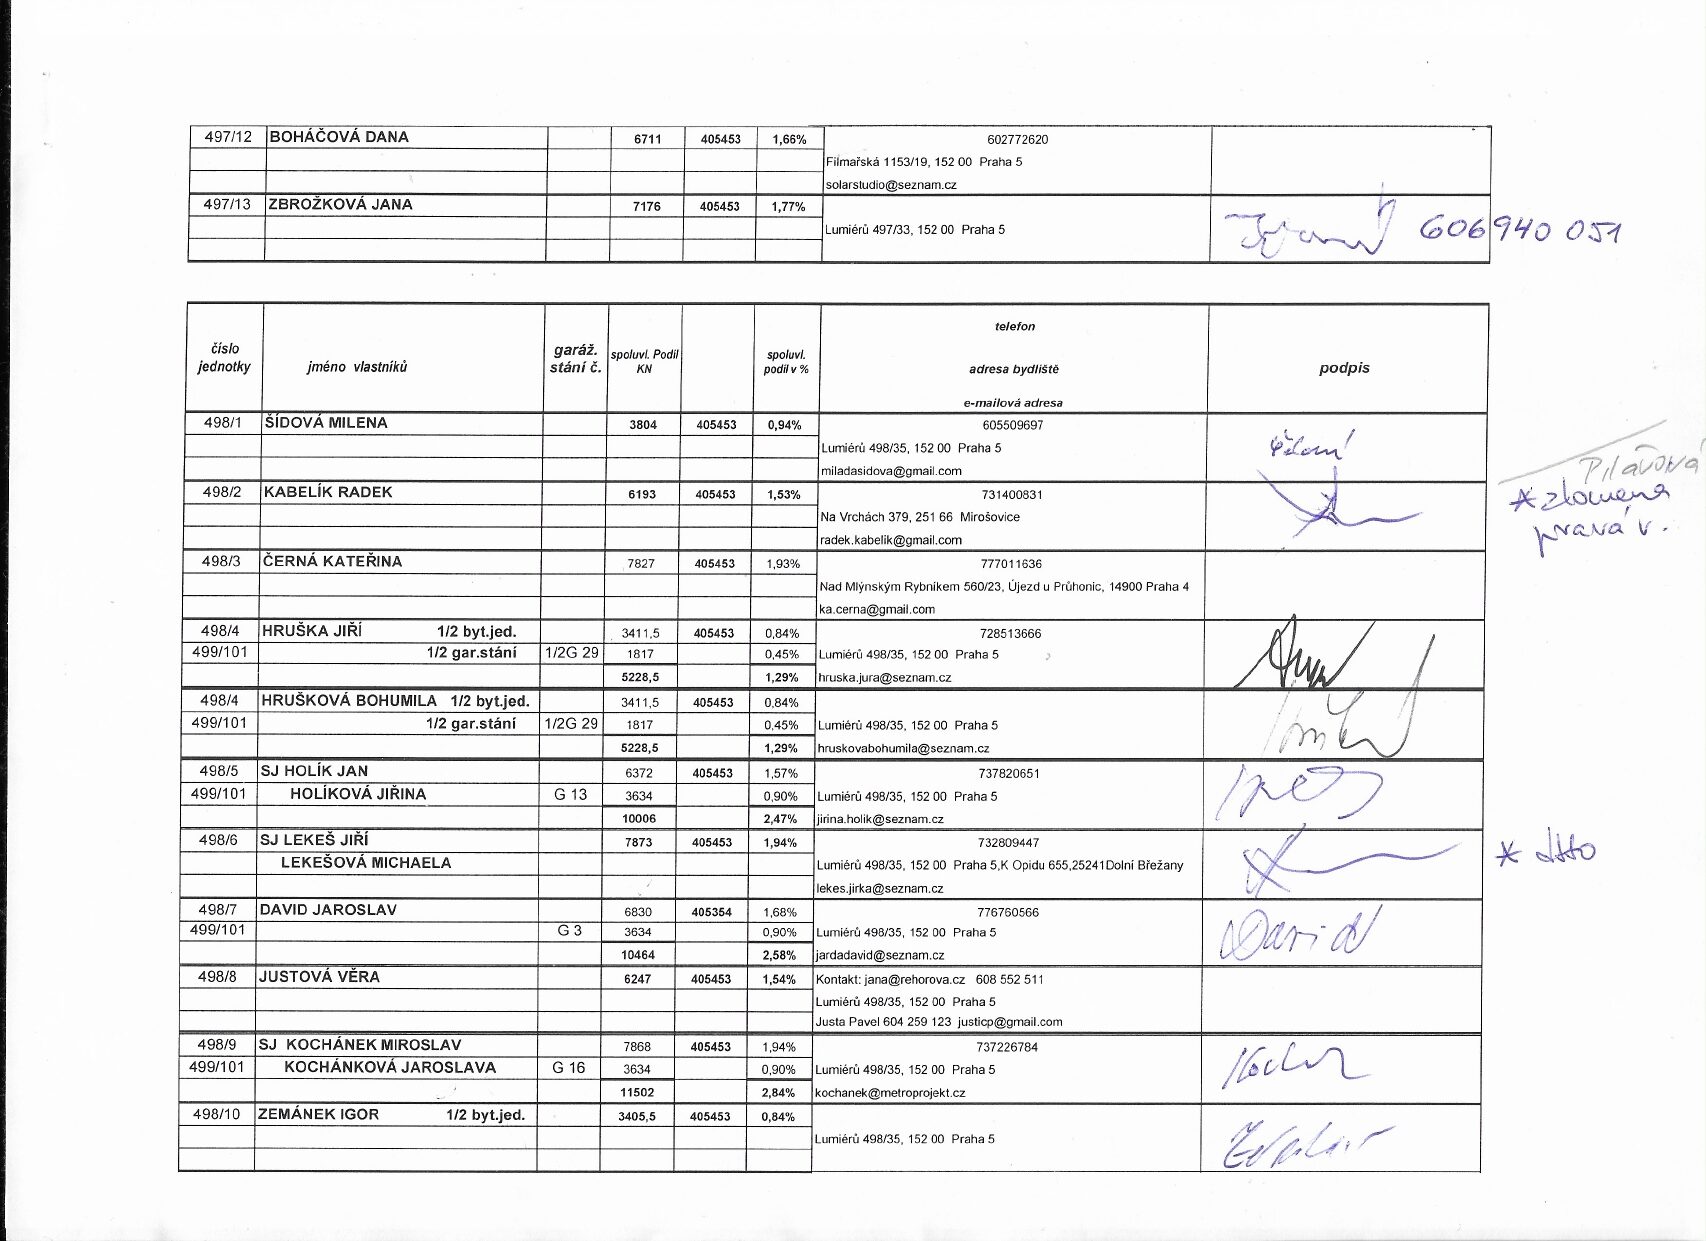 497/12 BOHÁČOVÁ DANA 6711 405453 1,66% 602772620
Filmařská 1153/19, 152 00 Praha 5
solarstudio@seznam.cz
497/13 ZBROŽKOVÁ JANA 7176 405453 1,77%
Lumiérů 497/33, 152 00 Praha 5 606 940 051
číslo jednotky jméno vlastníků garáž. stání č. spoluvl. Podíl KN spoluvl. podíl v % telefon adresa bydliště e-mailová adresa podpis
498/1 ŠÍDOVÁ MILENA 3804 405453 0,94% 605509697
Lumiérů 498/35, 152 00 Praha 5
miladasidova@gmail.com
498/2 KABELÍK RADEK 6193 405453 1,53% 731400831 * zlomená
Na Vrchách 379, 251 66 Mirošovice pravá v.
radek.kabelik@gmail.com
498/3 ČERNÁ KATEŘINA 7827 405453 1,93% 777011636
Nad Mlýnským Rybníkem 560/23, Újezd u Průhonic, 14900 Praha 4
ka.cerna@gmail.com
498/4 HRUŠKA JIŘÍ 1/2 byt.jed. 3411,5 405453 0,84% 728513666
499/101 1/2 gar.stání 1/2G 29 1817 0,45% Lumiérů 498/35, 152 00 Praha 5
5228,5 1,29% hruska.jura@seznam.cz
498/4 HRUŠKOVÁ BOHUMILA 1/2 byt.jed. 3411,5 405453 0,84%
499/101 1/2 gar.stání 1/2G 29 1817 0,45% Lumiérů 498/35, 152 00 Praha 5
5228,5 1,29% hruskovabohumila@seznam.cz
498/5 SJ HOLÍK JAN 6372 405453 1,57% 737820651
499/101 HOLÍKOVÁ JIŘINA G 13 3634 0,90% Lumiérů 498/35, 152 00 Praha 5
10006 2,47% jirina.holik@seznam.cz
498/6 SJ LEKEŠ JIŘÍ 7873 405453 1,94% 732809447 * dtto
LEKEŠOVÁ MICHAELA Lumiérů 498/35, 152 00 Praha 5,K Opidu 655,25241Dolní Břežany
lekes.jirka@seznam.cz
498/7 DAVID JAROSLAV 6830 405354 1,68% 776760566
499/101 G 3 3634 0,90% Lumiérů 498/35, 152 00 Praha 5 David
10464 2,58% jardadavid@seznam.cz
498/8 JUSTOVÁ VĚRA 6247 405453 1,54% Kontakt: jana@rehorova.cz 608 552 511
Lumiérů 498/35, 152 00 Praha 5
Justa Pavel 604 259 123 justicp@gmail.com
498/9 SJ KOCHÁNEK MIROSLAV 7868 405453 1,94% 737226784
499/101 KOCHÁNKOVÁ JAROSLAVA G 16 3634 0,90% Lumiérů 498/35, 152 00 Praha 5
11502 2,84% kochanek@metroprojekt.cz
498/10 ZEMÁNEK IGOR 1/2 byt.jed. 3405,5 405453 0,84%
Lumiérů 498/35, 152 00 Praha 5